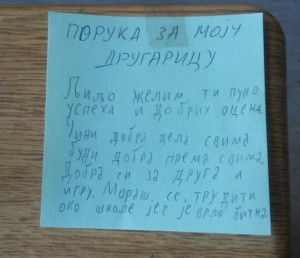 ПОРУКА ЗА МОЈУ
ДРУГАРИЦУ
Љиљо желим ти пуно
успеха и добрих оцена.
Чини добра дела свима
буди добра према свима.
Добра си за друга и
игру. Мораш се трудити
око школе јер је врло битна.